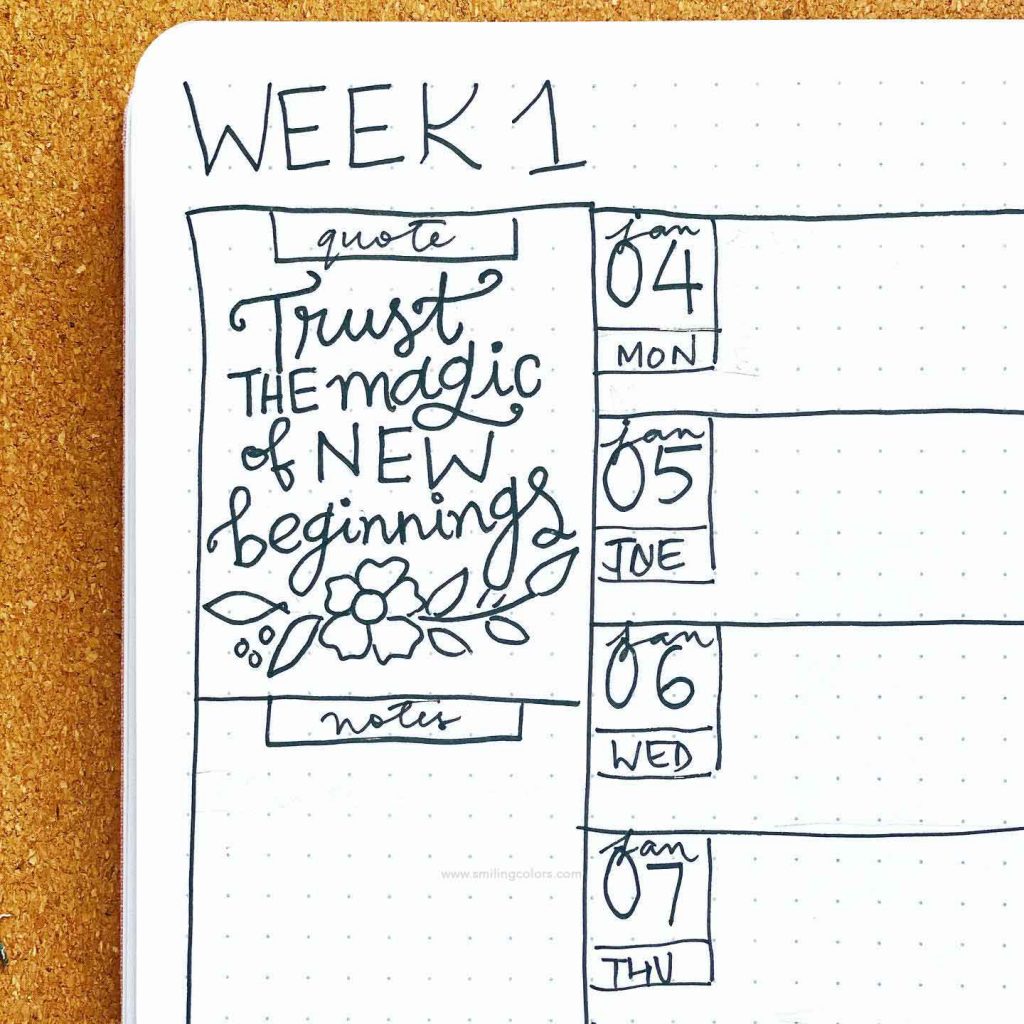 WEEK 1
quote
Trust
THE magic
of NEW
beginnings
notes
www.smilingcolors.com
jan
04
MON
jan
05
TNE
jan
06
WED
jan
07
THU